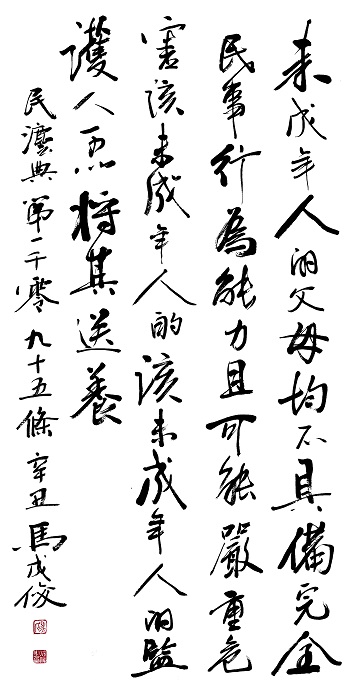 未成年人的父母均不具備完全
民事行為能力且可能嚴重危
害該未成年人的該未成年人的監
護人可以將其送養
民灋典第一千零九十五條 辛丑 馬成俊